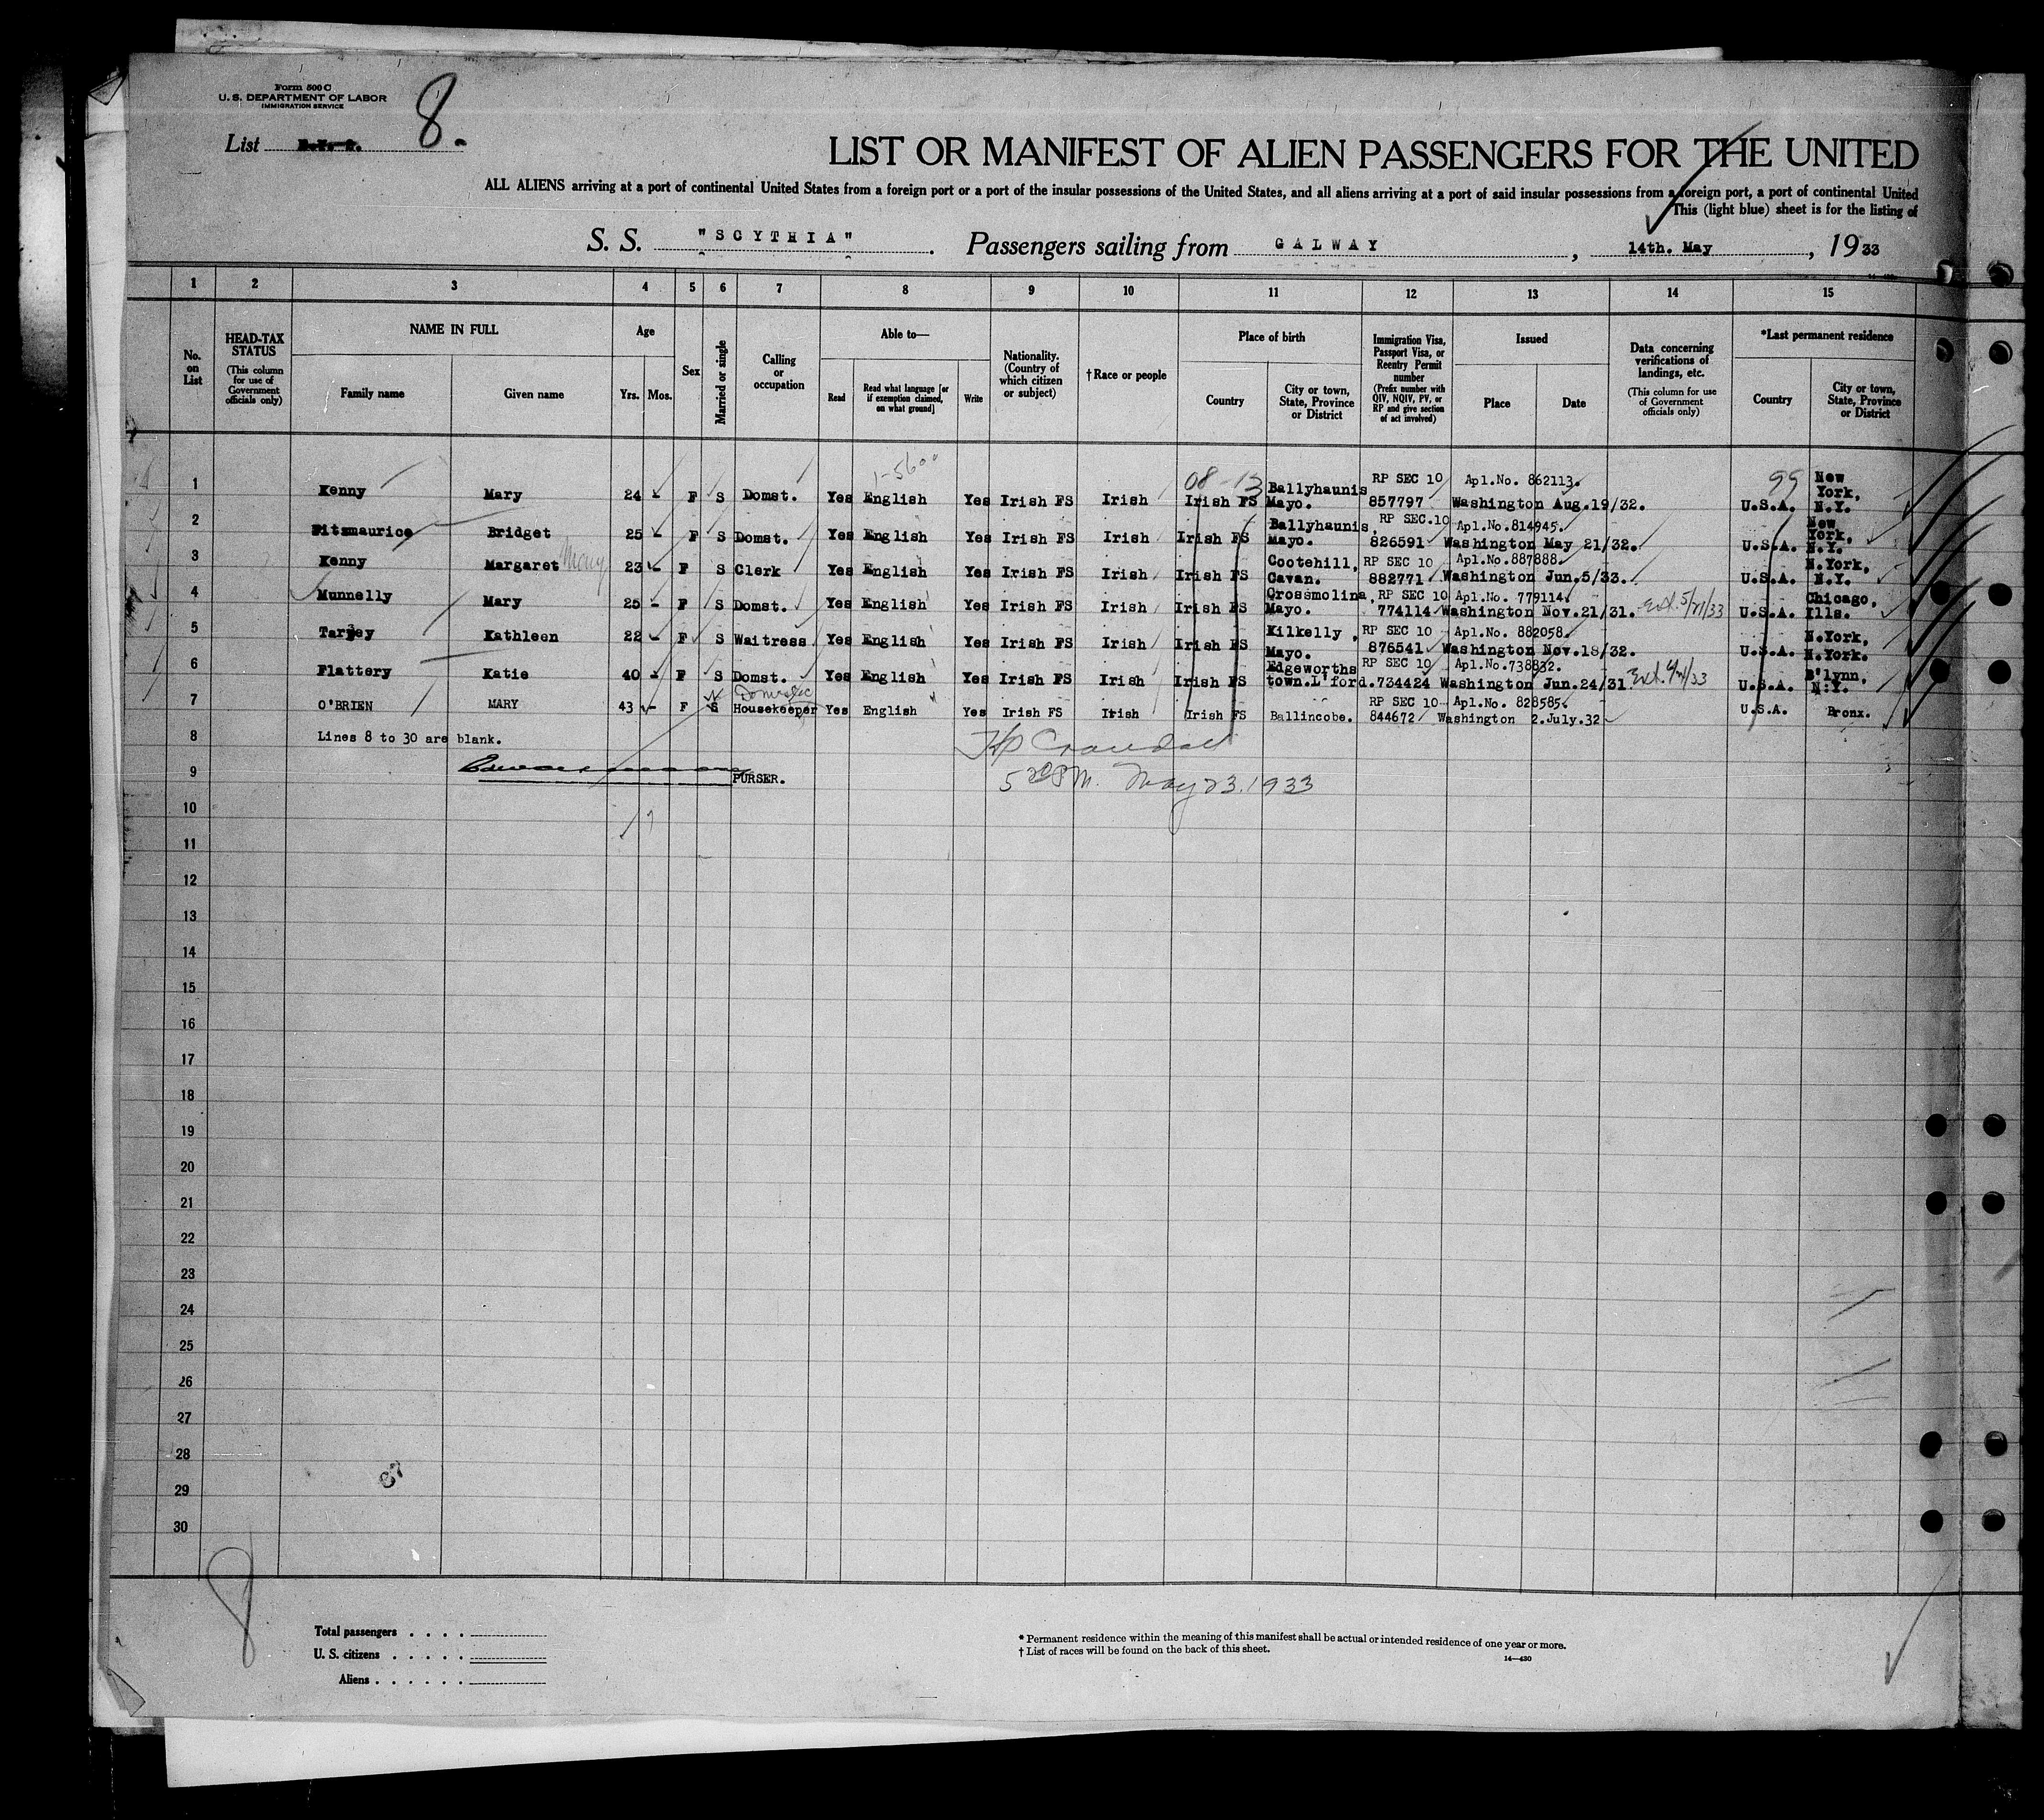 Form 500 C
U. S. DEPARTMENT OF LABOR
IMMIGRATION SERVICE
List 8.
LIST OR MANIFEST OF ALIEN PASSENGERS FOR THE UNITED
ALL ALIENS arriving at a port of continental United States from a foreign port or a port of the insular possessions of the United States, and all aliens arriving at a port of said insular possessions from a foreign port, a port of continental United
This (light blue) sheet is for the listing of
S. S. "SCYTHIA". Passengers sailing from GALWAY, 14th. May, 1933
1 2 3 4 5 6 7 8 9 10 11 12 13 14 15
No. on List
HEAD-TAX STATUS
(This column for use of Government officials only)
NAME IN FULL
Family name
Given name
Age
Yrs. Mos.
Sex
Married or single
Calling or occupation
Able to—
Read
Read what language [or if exemption claimed, on what ground]
Write
Nationality. (Country of which citizen or subject)
†Race or people
Place of birth
Country
City or town, State, Province or District
Immigration Visa, Passport Visa, or Reentry Permit number
(Prefix number with QIV, NQIV, PV, or RP and give section of act involved)
Issued
Place
Date
Data concerning verifications of landings, etc.
(This column for use of Government officials only)
*Last permanent residence
Country
City or town, State, Province or District
1-5600
08-13
99
1 Kenny Mary 24 - F S Domst. Yes English Yes Irish FS Irish Irish FS Ballyhaunis Mayo. RP SEC 10 857797 Apl.No. 862113. Washington Aug.19/32. U.S.A. New York, N.Y.
2 Fitzmaurice Bridget 25 - F S Domst. Yes English Yes Irish FS Irish Irish FS Ballyhaunis, Mayo. RP SEC.10 826591 Apl.No.814945. Washington May 21/32. U.S.A. New York, N.Y.
3 Kenny Margaret Mary 23 - F S Clerk Yes English Yes Irish FS Irish Irish FS Cootehill, Cavan. RP SEC 10 882771 Apl.No.887888. Washington Jun.5/33. U.S.A. N.York, N.Y.
4 Munnelly Mary 25 - F S Domst. Yes English Yes Irish FS Irish Irish FS Crossmolina, Mayo. RP SEC 10 774114 Apl.No. 779114. Washington Nov.21/31. Ext. 5/21/33 U.S.A. Chicago, Ills.
5 Kathleen 22 - F S Waitress. Yes English Yes Irish FS Irish Irish FS Kilkelly, Mayo. RP SEC 10 876541 Apl.No. 882058. Washington Nov.18/32. U.S.A. N.York, N.York.
6 Flattery Katie 40 - F S Domst. Yes English Yes Irish FS Irish Irish FS Edgeworths town.L'ford. RP SEC 10 734424 Apl.No.738832. Washington Jun.24/31. Ext. U.S.A. B'lynn, N.Y.
Domestic
7 O'BRIEN MARY 43 - F S Housekeeper Yes English Yes Irish FS Irish Irish FS Ballincobe. RP SEC 10 844672 Apl.No. 828585. Washington 2.July.32 U.S.A. Bronx.
8 Lines 8 to 30 are blank.
Crandall
9 PURSER.
5 PM. May 23.1933
10
11
12
13
14
15
16
17
18
19
20
21
22
23
24
25
26
27
28
29
30
8
Total passengers . . . .
U. S. citizens . . . . .
Aliens . . . . . .
* Permanent residence within the meaning of this manifest shall be actual or intended residence of one year or more.
† List of races will be found on the back of this sheet.
14—430